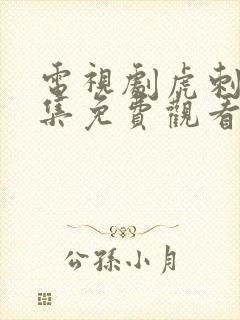 電視劇虎刺
集免費觀看
公孫小月